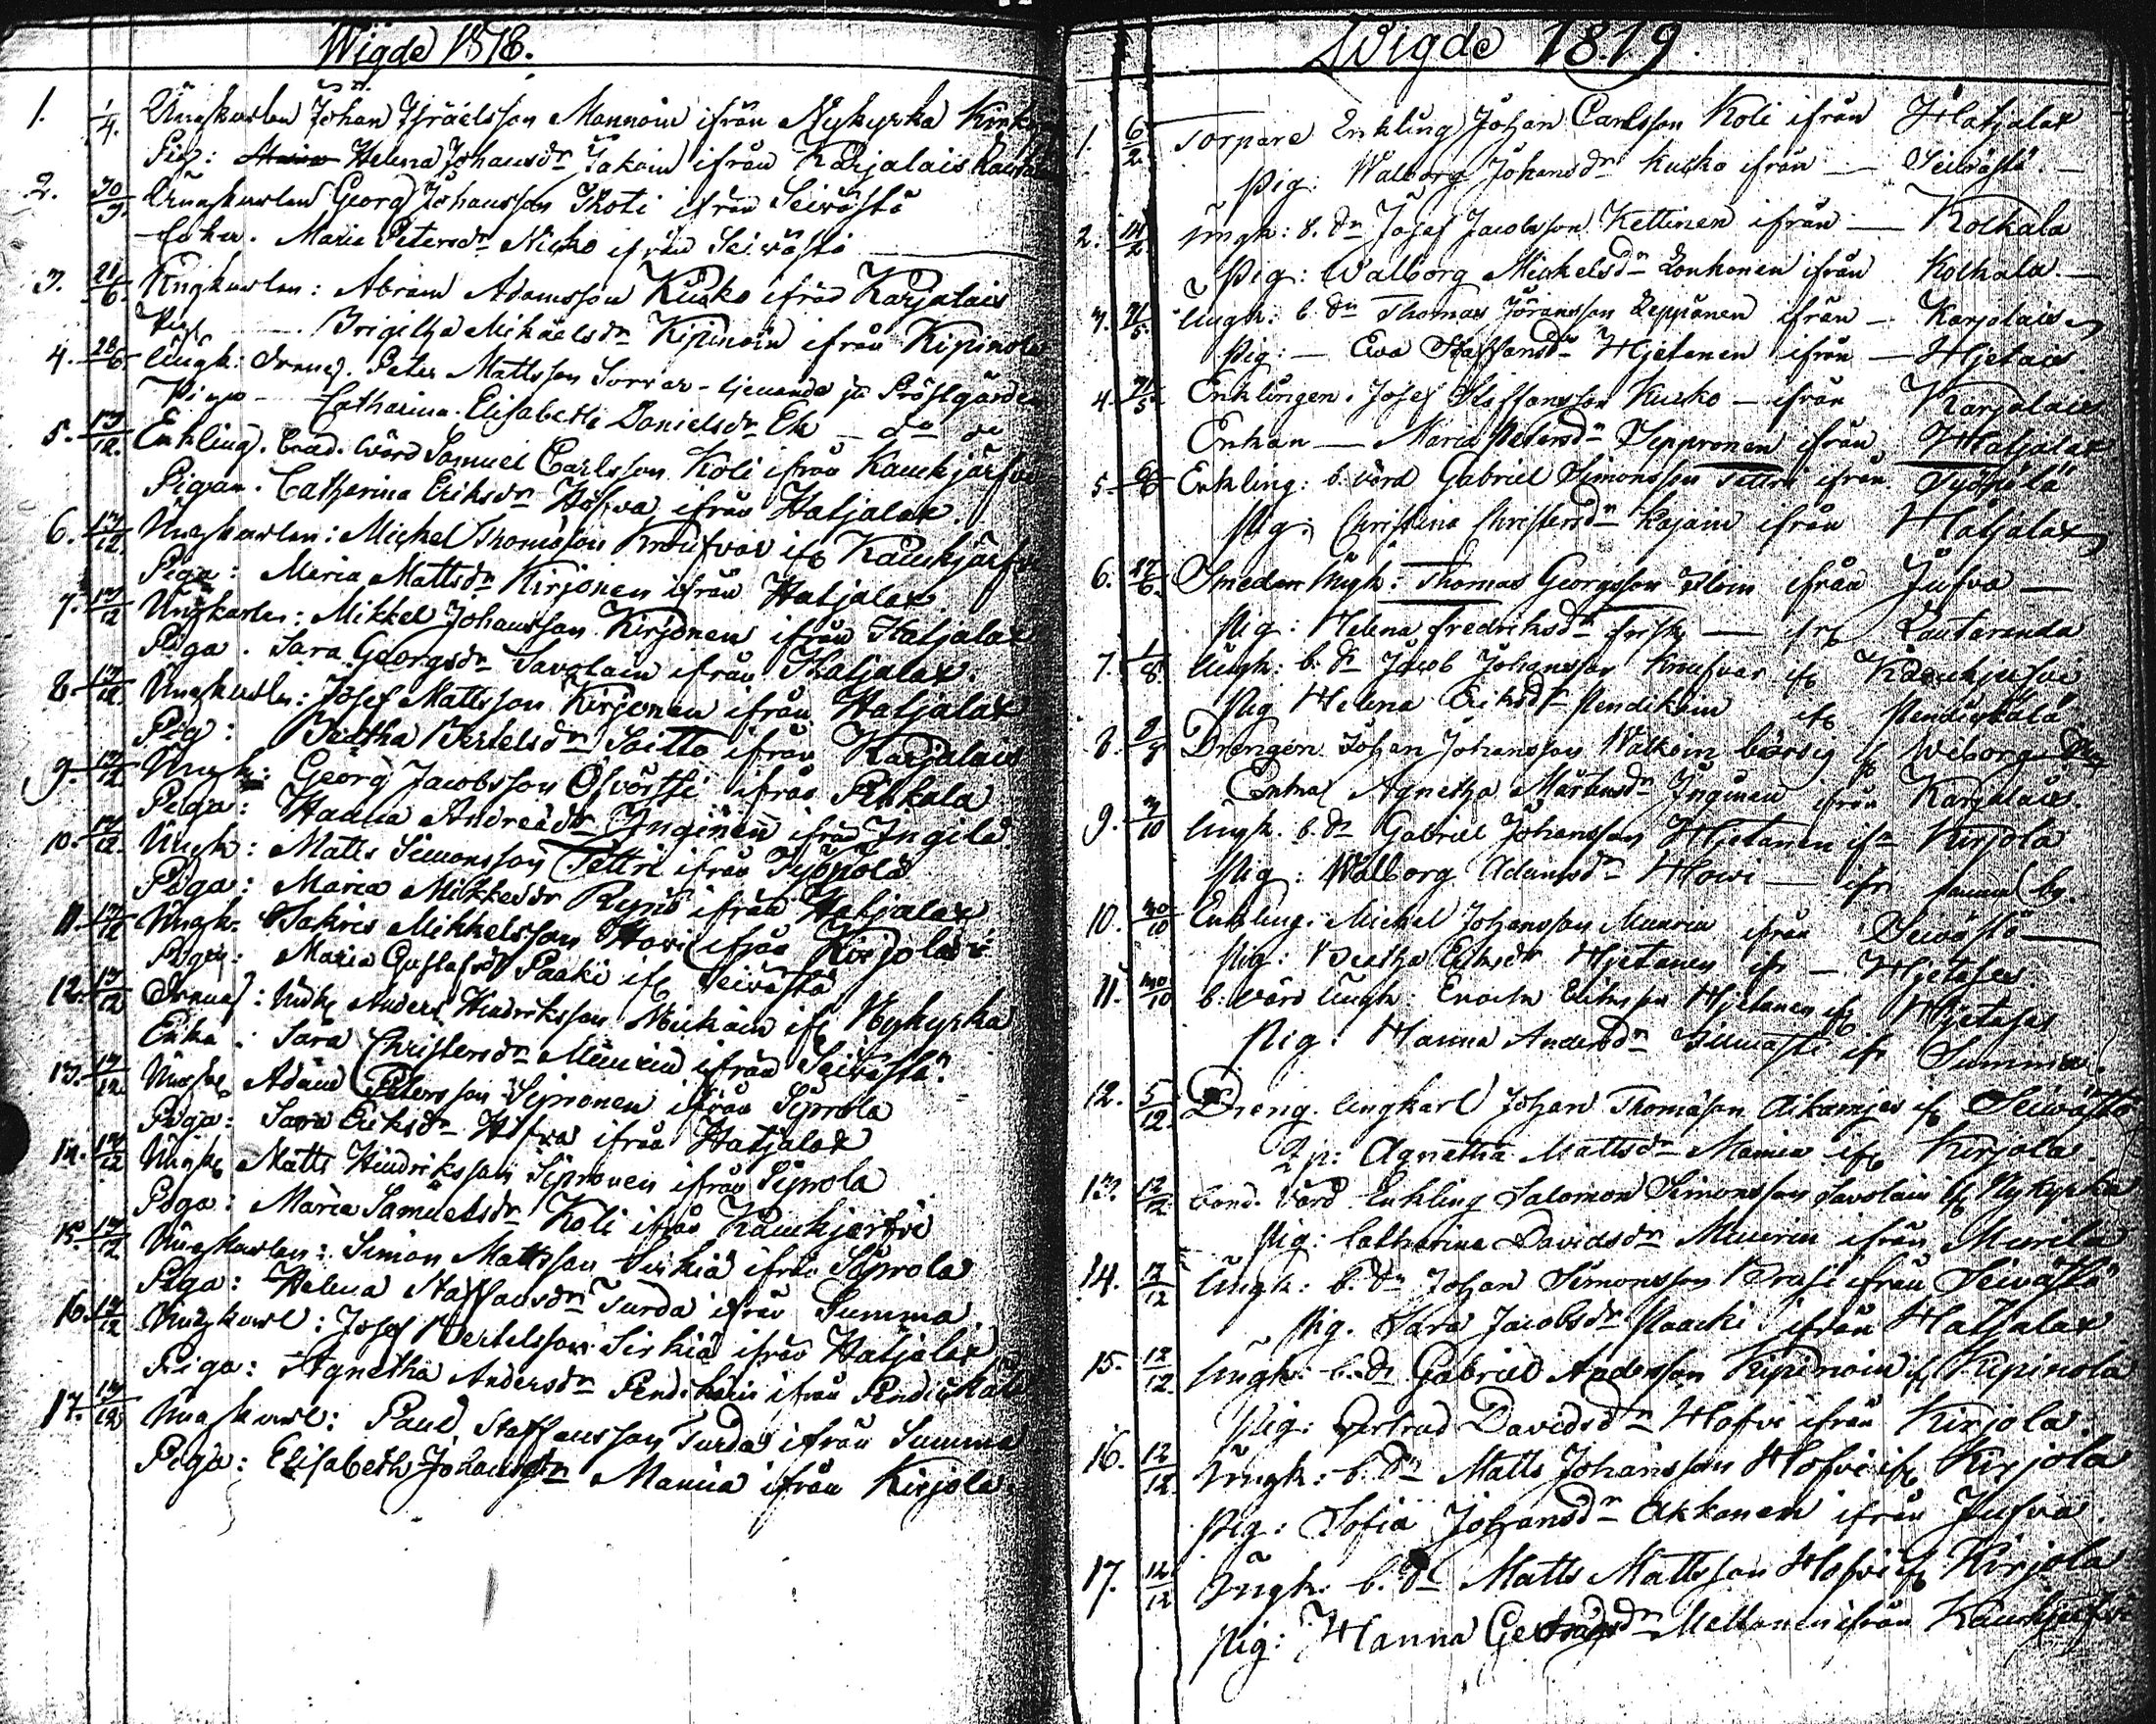 Wigde 1818.
1. 1/4. Ungkarlen Johan Israelsson Mannoin ifrån Nykyrka
Pig: Helena Johansdr Jakoin ifrån Karjalais
2. Ungkarlen Georg Johansson Skoti ifrån Seivästö
Enka. Maria Petersdr Nicko ifrån Seivästö
3. 21/6. Ungkarlen: Abram Adamsson Kucko ifrån Karjalais
Pig Brigitha Mikaelsdr Kipinoin ifrån Kipinola
4. 28/6 Ungk: Dreng. Peter Mattsson Sorvar tjenande på Pröstgården
Piga Catharina Elisabeth Danielsdr Ek do do
5. 13/12. Enkling. Bond. Wärd Samuel Carlsson Koli ifrån Kaukjärfvi
Pigan. Catharina Eriksdr Hofva ifrån Hatjalax.
6. 13/12 Ungkarlen: Michel Thomasson Knufvar ifr Kaukjärfvi
Piga: Maria Mattsdr Kirjonen ifrån Hatjalax.
7. 13/12 Ungkarlen: Mikkel Johansson Kirjonen ifrån Hatjalax
Piga. Sara Georgsdr Savolain ifrån Hatjalax.
8. 13/12 Ungkarln: Josef Mattsson Kirjonen ifrån Hatjalax
Pig: Beatha Bertelsdr Soitto ifrån Karjalais
9. 13/12. Ungk: Georg Jacobsson ifrån Pihkala
Piga: Hanna Andreadr Inginen ifrån Ingilä
10. 13/12. Ungk: Matts Simonsson Tettri ifrån Työpölä
Piga: Maria Mikkelsdr Rynö ifrån Hatjalax
11. 13/12 Ungk. Sakris Mikkelsson Hovi ifrån Kirjola
Pigan: Maria Gustafsdr Paaki ifr Seivästö
12. 13/12 Dreng: Ungk Anders Hindriksson Mickoin ifr Nykyrka
Enka: Sara Christersdr Muurin ifrån Seivästö.
13. 13/12 Ungk Adam Petersson Sipronen ifrån Siprola
Piga: Sara Eriksdr Hofva ifrån Hatjalax
14. 13/12 Ungk Matts Hindriksson Sipronen ifrån Siprola
Piga: Maria Samuelsdr Koli ifrån Kaukjerfvi
15. 13/12 Ungkarlen: Simon Mattsson Sirkiä ifrån Siprola
Piga: Helena Staffansdr Turda ifrån Summa.
16. 13/12 Ungkarl: Josef Bertelsson Sirkiä ifrån Hatjalax
Piga: Agnetha Andersdr Pendikäin ifrån Pendickälä
17. 13/12 Ungkarl: Paul Staffansson Turda ifrån Summa
Piga: Elisabeth Johansdr Mannia ifrån Kirjola.
Wigde 1819.
1. 6/2. Torpare Enkling Johan Carlsson Koli ifrån Hatjalax
Pig: Walborg Johansdr Kucko ifrån — Seivästö. —
2. 14/2 Ungk: b. dn Josef Jacobsson Kettinen ifrån — Kolkala
Pig: Walborg Mickelsdr Lonkonen ifrån Kolkala. —
3. 31/5. Ungk: b. dn Thomas Jöransson Leppänen ifrån — Karjalais
Pig: — Ewa Staffansdr Hjetanen ifrån — Hjetais
4. 31/5 Enklingen. Josef Staffansson Kucko — ifrån Karjalais
Enkan — Maria Petersdr Seppronen ifrån Hatjalax
5. 6/6 Enkling: b. värd Gabriel Simonsson Tettri ifrån Työpölä
Pig: Christina Christersdr Kajain ifrån Hatjalax
6. 27/6. Smeden Ungk: Thomas Georgsson Iloin ifrån Jufva —
Pig: Helena Fredriksdr Frisk — ifr Lautaranda
7. 1/8 Ungk: b. dn Jacob Johansson Knufvar ifr Kaukjerfvi
Pig Helena Eriksdr Pendikäin ifr Pendickälä
8. 8/8 Drengen Johan Johansson Walkoin bördig fr Wiborg
Enkan Agnetha Mårtensdr Inginen ifrån Karjalais.
9. 3/10 Ungk. b. dn Gabriel Johansson Hjetanen ifr Kirjola
Pig: Walborg Adamsdr Howi — ifr samma by.
10. 30/10 Enkling. Michel Johansson Muurin ifrån Seivästö —
Pig: Beatha Eriksdr Hjetanen ifr — Hjetases
11. 30/10 b: värd Ungk: Enoch Eriksson Hjetanen ifr Hjetases
Pig: Hanna Andersdr ifr Summa.
12. 5/12. Dreng. Ungkarl Johan Thomasson ifr Seivästö
Pig: Agnetha Mattsdr Mannia ifr Kirjola.
13. 12/12 Bond. Värd Enkling Salomon Simonsson Savolain ifr Nykyrka
Pig: Catharina Davidsdr Muurin ifrån Murila
14. 12/12 Ungk: b. dn Johan Simonsson Prusi ifrån Seivästö
Pig. Sara Jacobsdr Paacki ifrån Hatjalax
15. 12/12. Ungk: b. dn Gabriel Andersson Kipinoin ifr Kipinola
Pig: Gertrud Davidsdr Hofvi ifrån Kirjola.
16. 12/12 Ungk: b. dn Matts Johansson Hofvi ifr Kirjola
Pig: Sofia Johansdr Akkanen ifrån Jufva.
17. 12/12 Ungk: b. dn Matts Mattsson Hofvi ifr Kirjola
Pig: Hanna Mellanen ifrån Kaukjerfvi